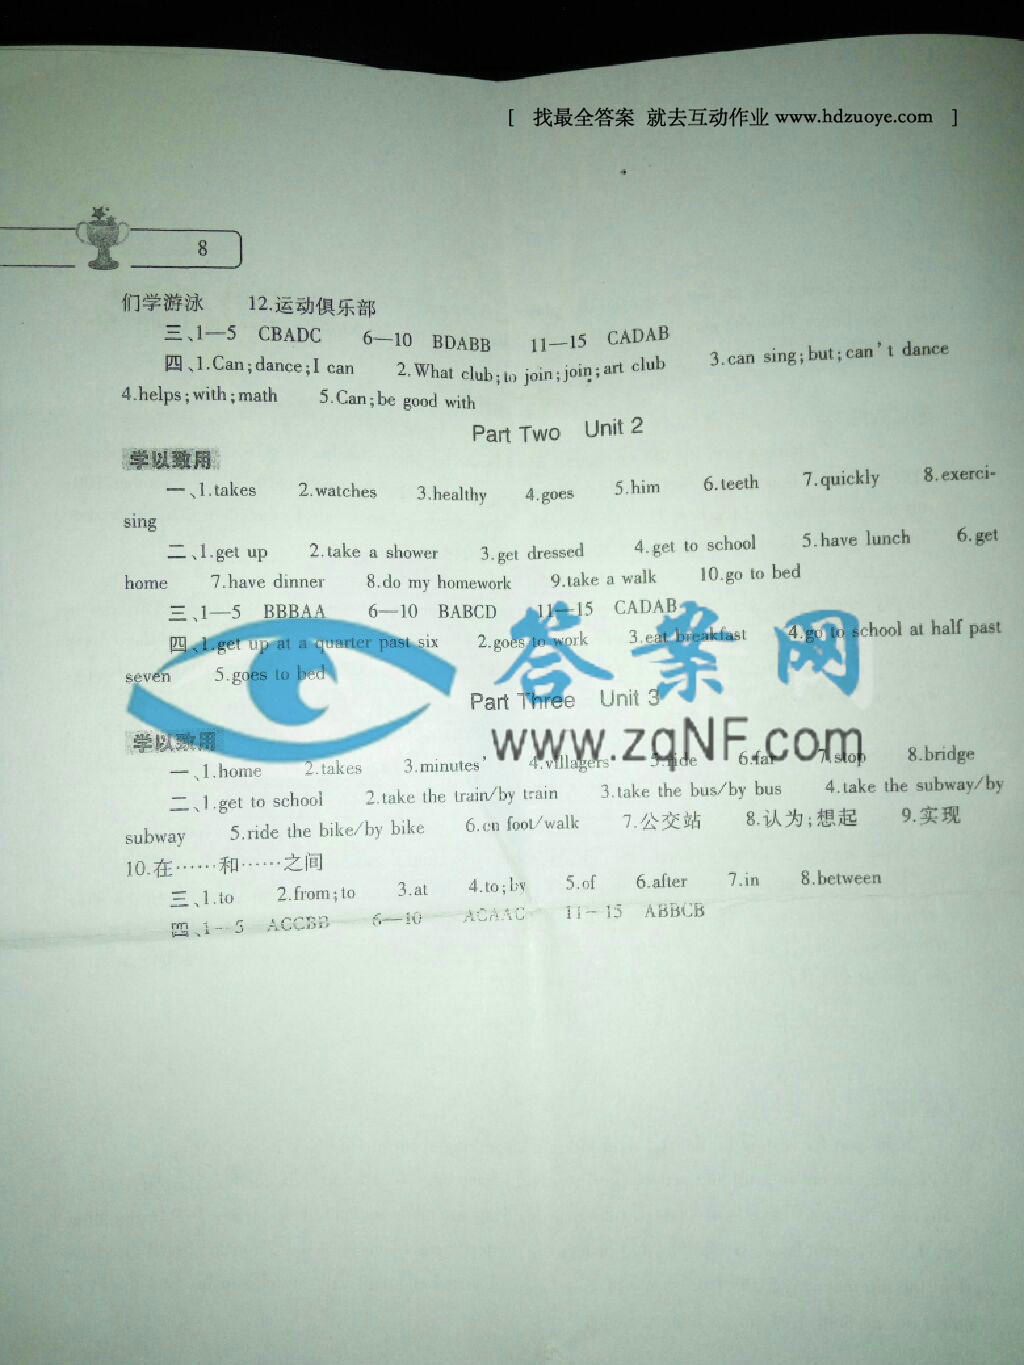 [ 找最全答案 就去互动作业 www.hdzuoye.com ]
8
们学游泳 12.运动俱乐部
三、1—5 CBADC 6—10 BDABB 11—15 CADAB
四、1.Can;dance;I can 2.What club;to join;join;art club 3.can sing;but;can't dance
4.helps;with;math 5.Can;be good with
Part Two Unit 2
学以致用
一、1.takes 2.watches 3.healthy 4.goes 5.him 6.teeth 7.quickly 8.exerci-
sing
二、1.get up 2.take a shower 3.get dressed 4.get to school 5.have lunch 6.get
home 7.have dinner 8.do my homework 9.take a walk 10.go to bed
三、1—5 BBBAA 6—10 BABCD 11—15 CADAB
四、1.get up at a quarter past six 2.goes to work 3.eat breakfast 4.go to school at half past
seven 5.goes to bed
答案网
Part Three Unit 3
www.zqNF.com
学以致用
一、1.home 2.takes 3.minutes' 4.villagers 5.ride 6.far 7.stop 8.bridge
二、1.get to school 2.take the train/by train 3.take the bus/by bus 4.take the subway/by
subway 5.ride the bike/by bike 6.on foot/walk 7.公交站 8.认为;想起 9.实现
10.在……和……之间
三、1.to 2.from;to 3.at 4.to;by 5.of 6.after 7.in 8.between
四、1—5 ACCBB 6—10 ACAAC 11—15 ABBCB